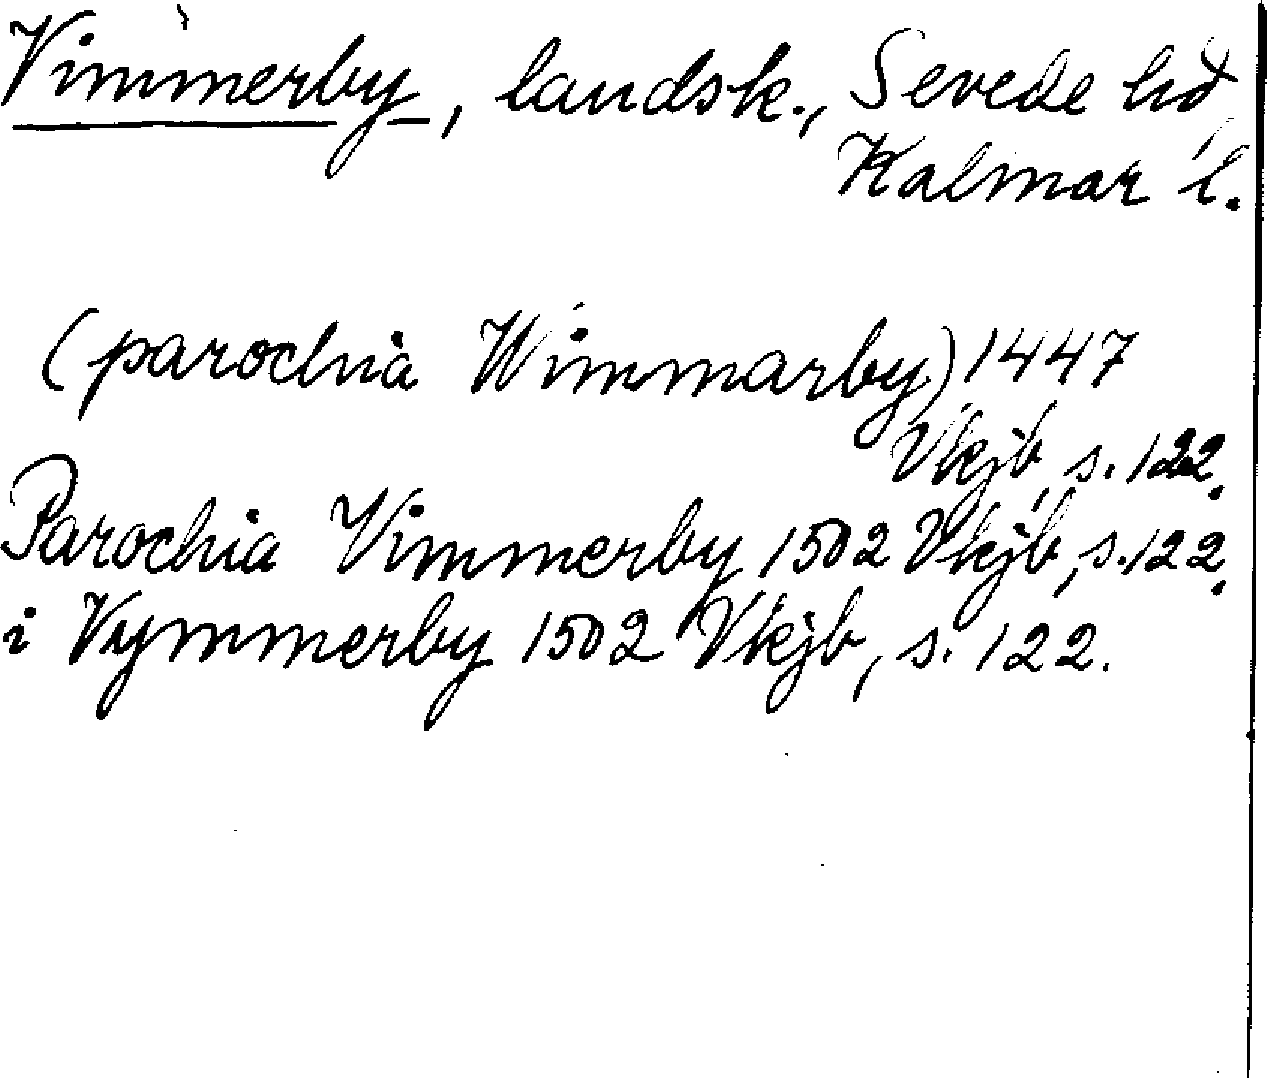 Vimmerby, landsk., Sevede hd,
Kalmar l.
(parochia Wimmarby) 1447
Vkjb, s. 122.
Parochia Vimmerby 1502 Vkjb, s. 122.
i Vymmerby 1502 Vkjb, s. 122.